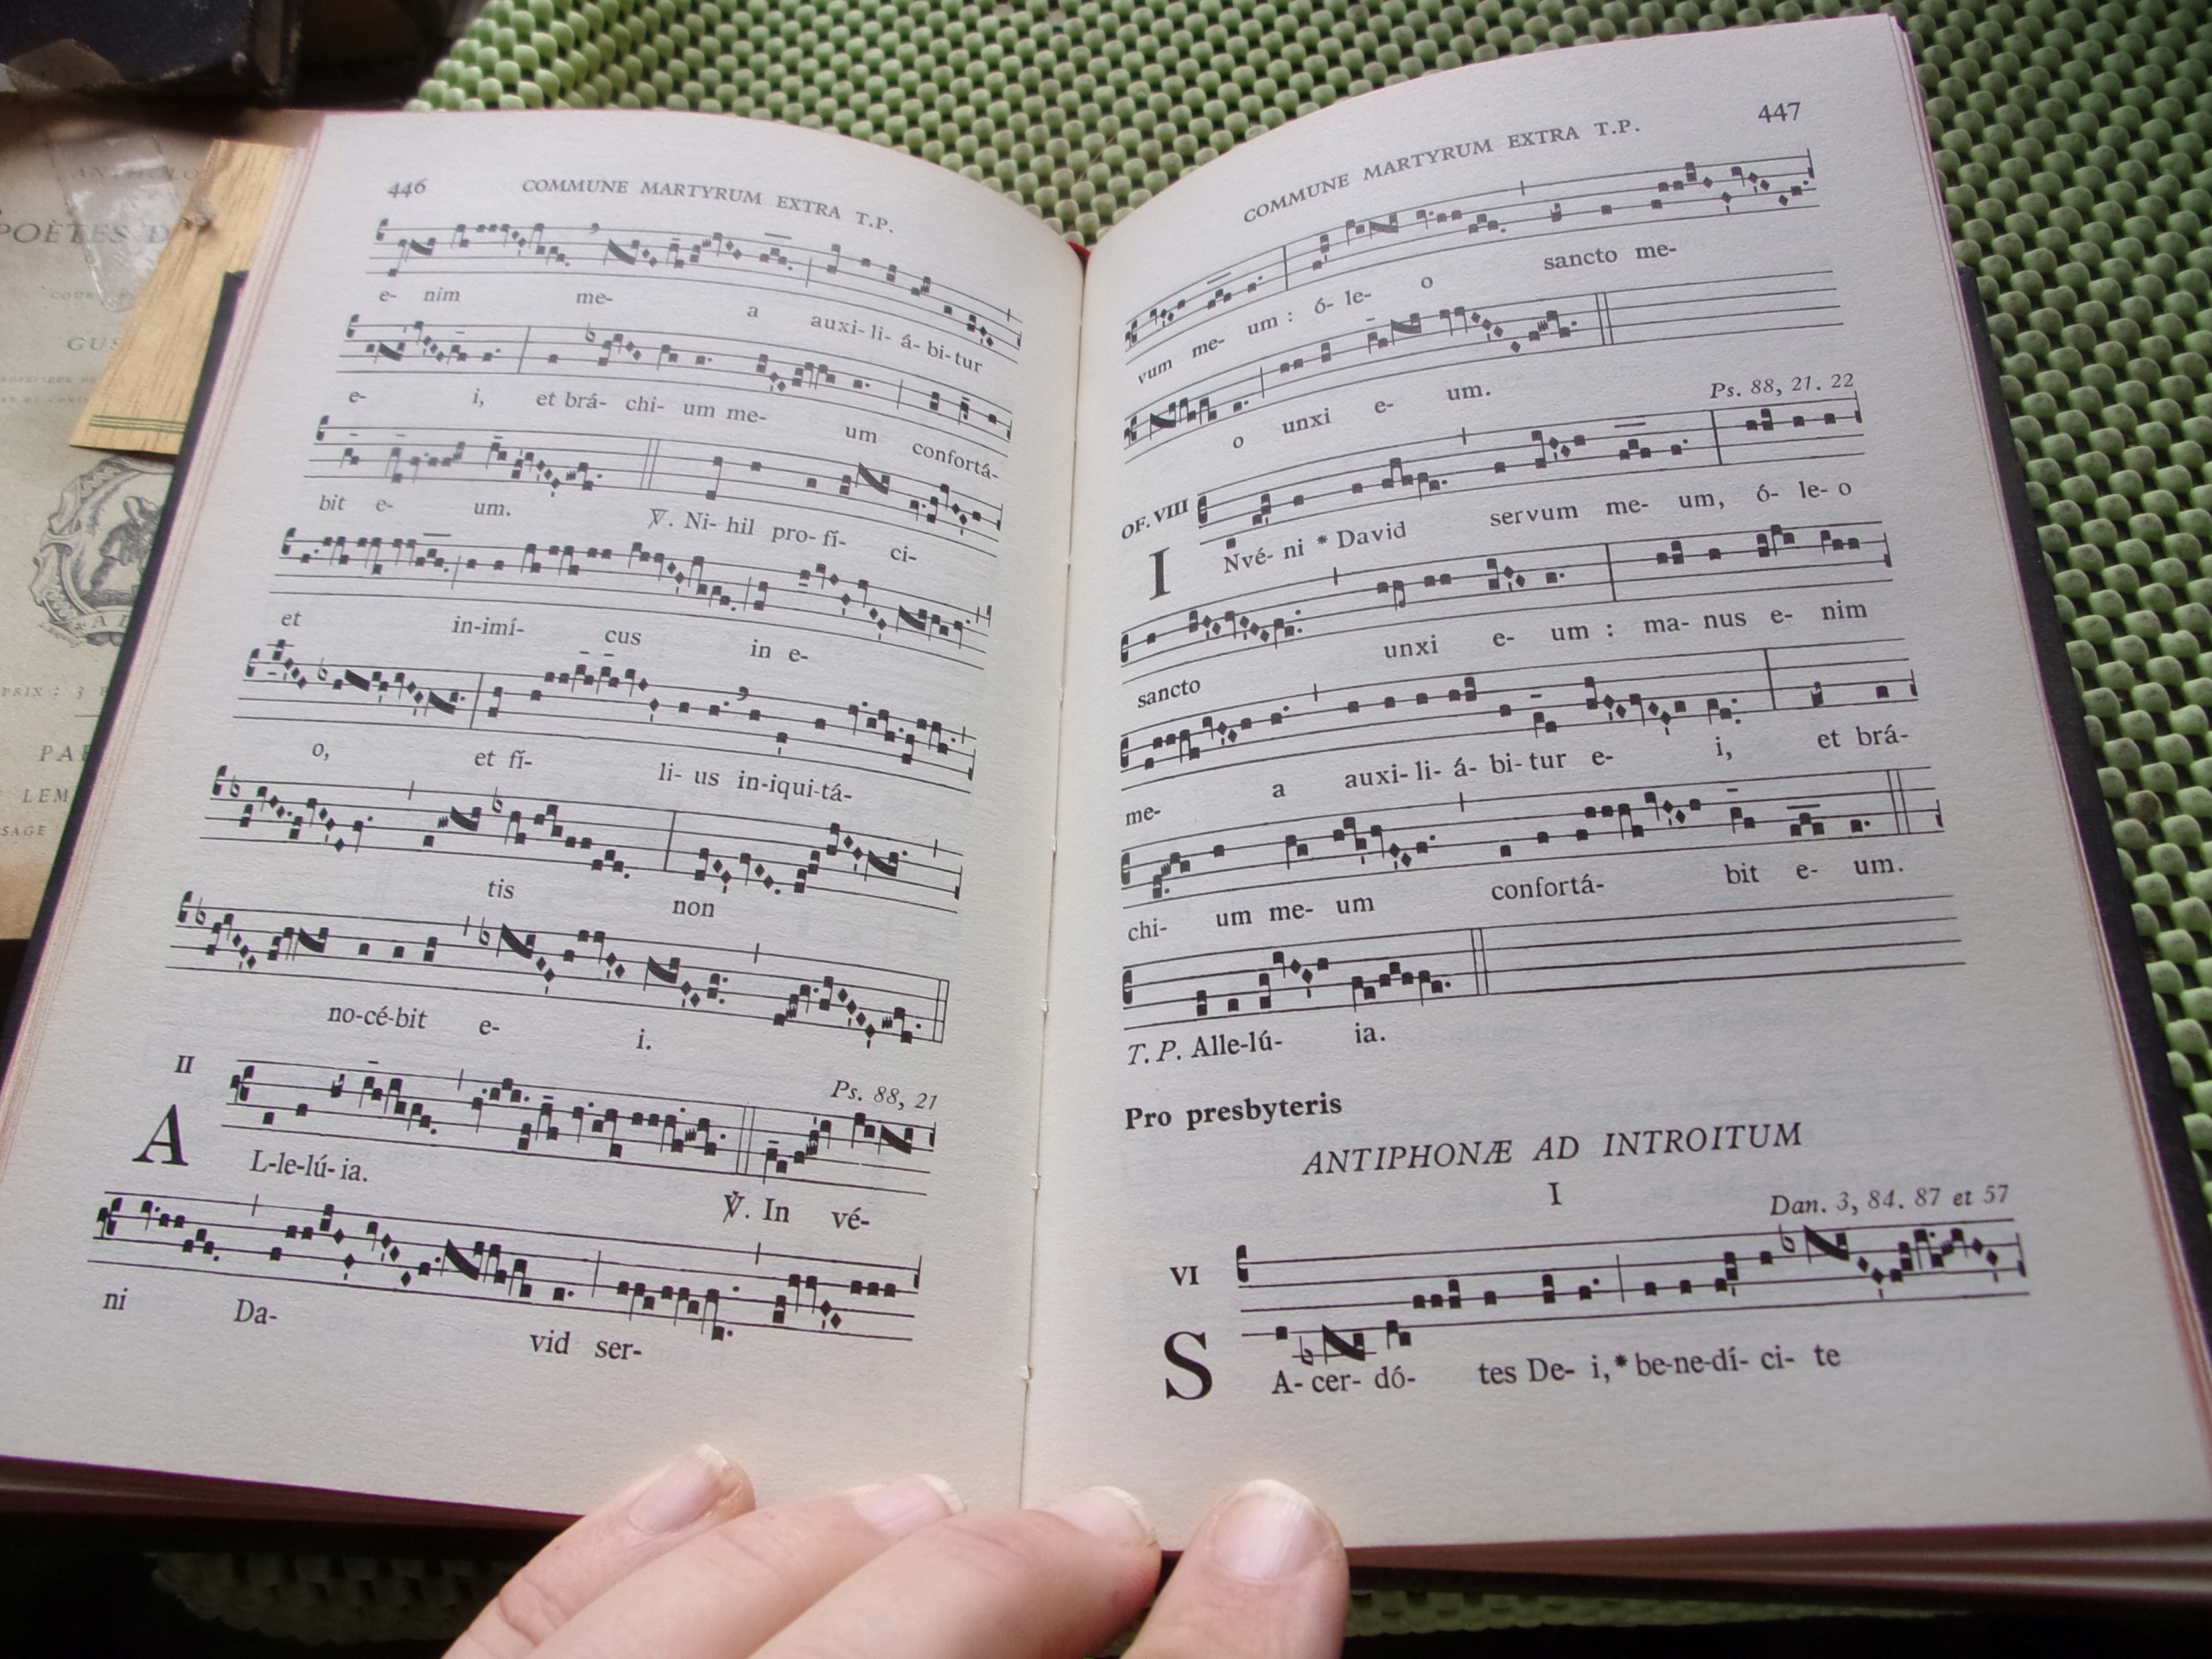 ANTHOLO
POÈTES D
GUS
PRIX : 3
PAR
LEM
SAGE
446
COMMUNE MARTYRUM EXTRA T.P.
e- nim me- a auxi- li- á- bi- tur
e- i, et brá- chi- um me- um confortá-
bit e- um. ℣. Ni- hil pro- fí- ci-
et in-imí- cus in e-
o, et fí- li- us in-iqui-tá-
tis non
no-cé-bit e- i.
II
Ps. 88, 21
A L-le-lú- ia. ℣. In vé-
ni Da- vid ser-
COMMUNE MARTYRUM EXTRA T.P.
447
vum me- um : ó- le- o sancto me-
o unxi e- um.
Ps. 88, 21. 22
OF. VIII
I Nvé- ni * David servum me- um, ó- le- o
sancto unxi e- um : ma- nus e- nim
me- a auxi- li- á- bi- tur e- i, et brá-
chi- um me- um confortá- bit e- um.
T. P. Alle-lú- ia.
Pro presbyteris
ANTIPHONÆ AD INTROITUM
I
Dan. 3, 84. 87 et 57
VI
S A- cer- dó- tes De- i, * be-ne-dí- ci- te